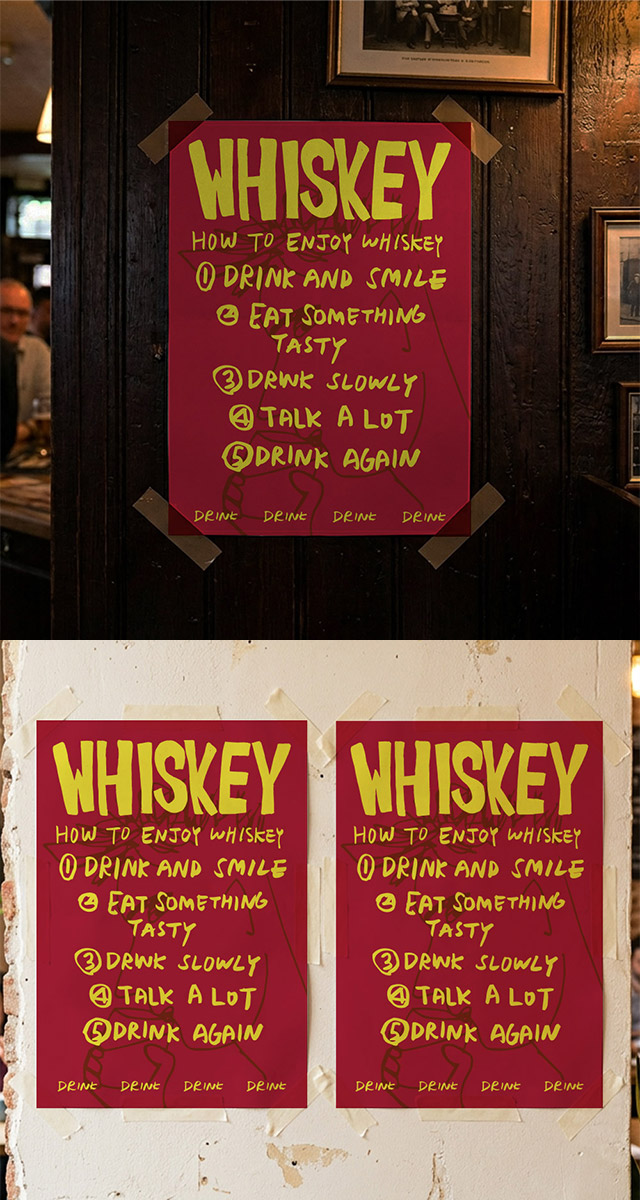 WHISKEY
HOW TO ENJOY WHISKEY
① DRINK AND SMILE
② EAT SOMETHING
TASTY
③ DRINK SLOWLY
④ TALK A LOT
⑤ DRINK AGAIN
DRINK DRINK DRINK DRINK
WHISKEY WHISKEY
HOW TO ENJOY WHISKEY HOW TO ENJOY WHISKEY
① DRINK AND SMILE ① DRINK AND SMILE
② EAT SOMETHING ② EAT SOMETHING
TASTY TASTY
③ DRINK SLOWLY ③ DRINK SLOWLY
④ TALK A LOT ④ TALK A LOT
⑤ DRINK AGAIN ⑤ DRINK AGAIN
DRINK DRINK DRINK DRINK DRINK DRINK DRINK DRINK